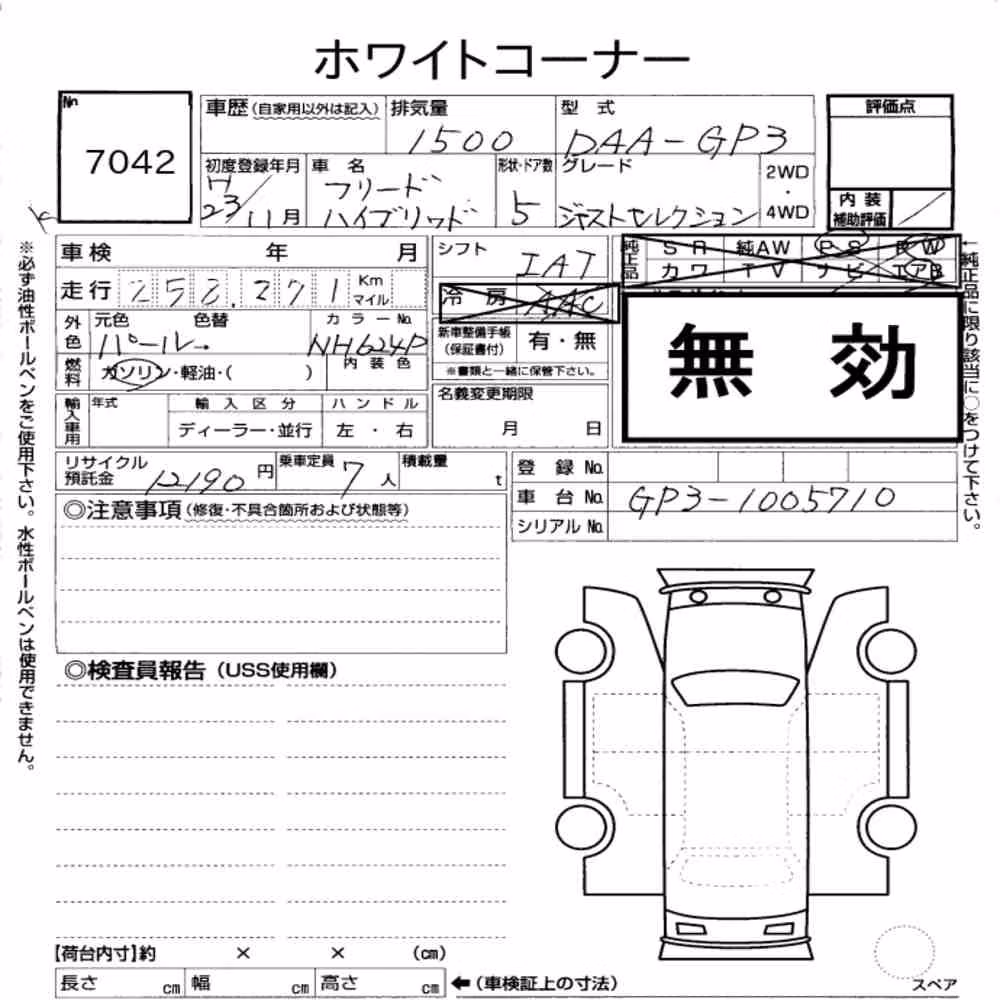 ホワイトコーナー
No 7042
車歴(自家用以外は記入) 排気量 1500 型式 DAA-GP3
初度登録年月 H23/11月 車名 フリードハイブリッド 形状・ドア数 5 グレード ジャストセレクション 2WD・4WD
評価点
内装補助評価 /
※必ず油性ボールペンをご使用下さい。水性ボールペンは使用できません。
車検 年 月
走行 258,271 Km マイル
外色 元色 パール 色替 カラーNo. NH624P
燃料 ガソリン・軽油・( ) 内装色
輸入車用 年式 輸入区分 ディーラー・並行 ハンドル 左・右
シフト IAT
冷房 AAC
新車整備手帳(保証書付) 有・無
※書類と一緒に保管下さい。
名義変更期限 月 日
純正品 SR 純AW PS PW
カワ TV ナビ エアB
無効
←純正品に限り該当に○をつけて下さい。
リサイクル預託金 12190円 乗車定員 7人 積載量 t
登録No.
車台No. GP3-1005710
シリアルNo.
◎注意事項(修復・不具合箇所および状態等)
◎検査員報告(USS使用欄)
【荷台内寸】約 × × (cm)
長さ cm 幅 cm 高さ cm ←(車検証上の寸法)
スペア